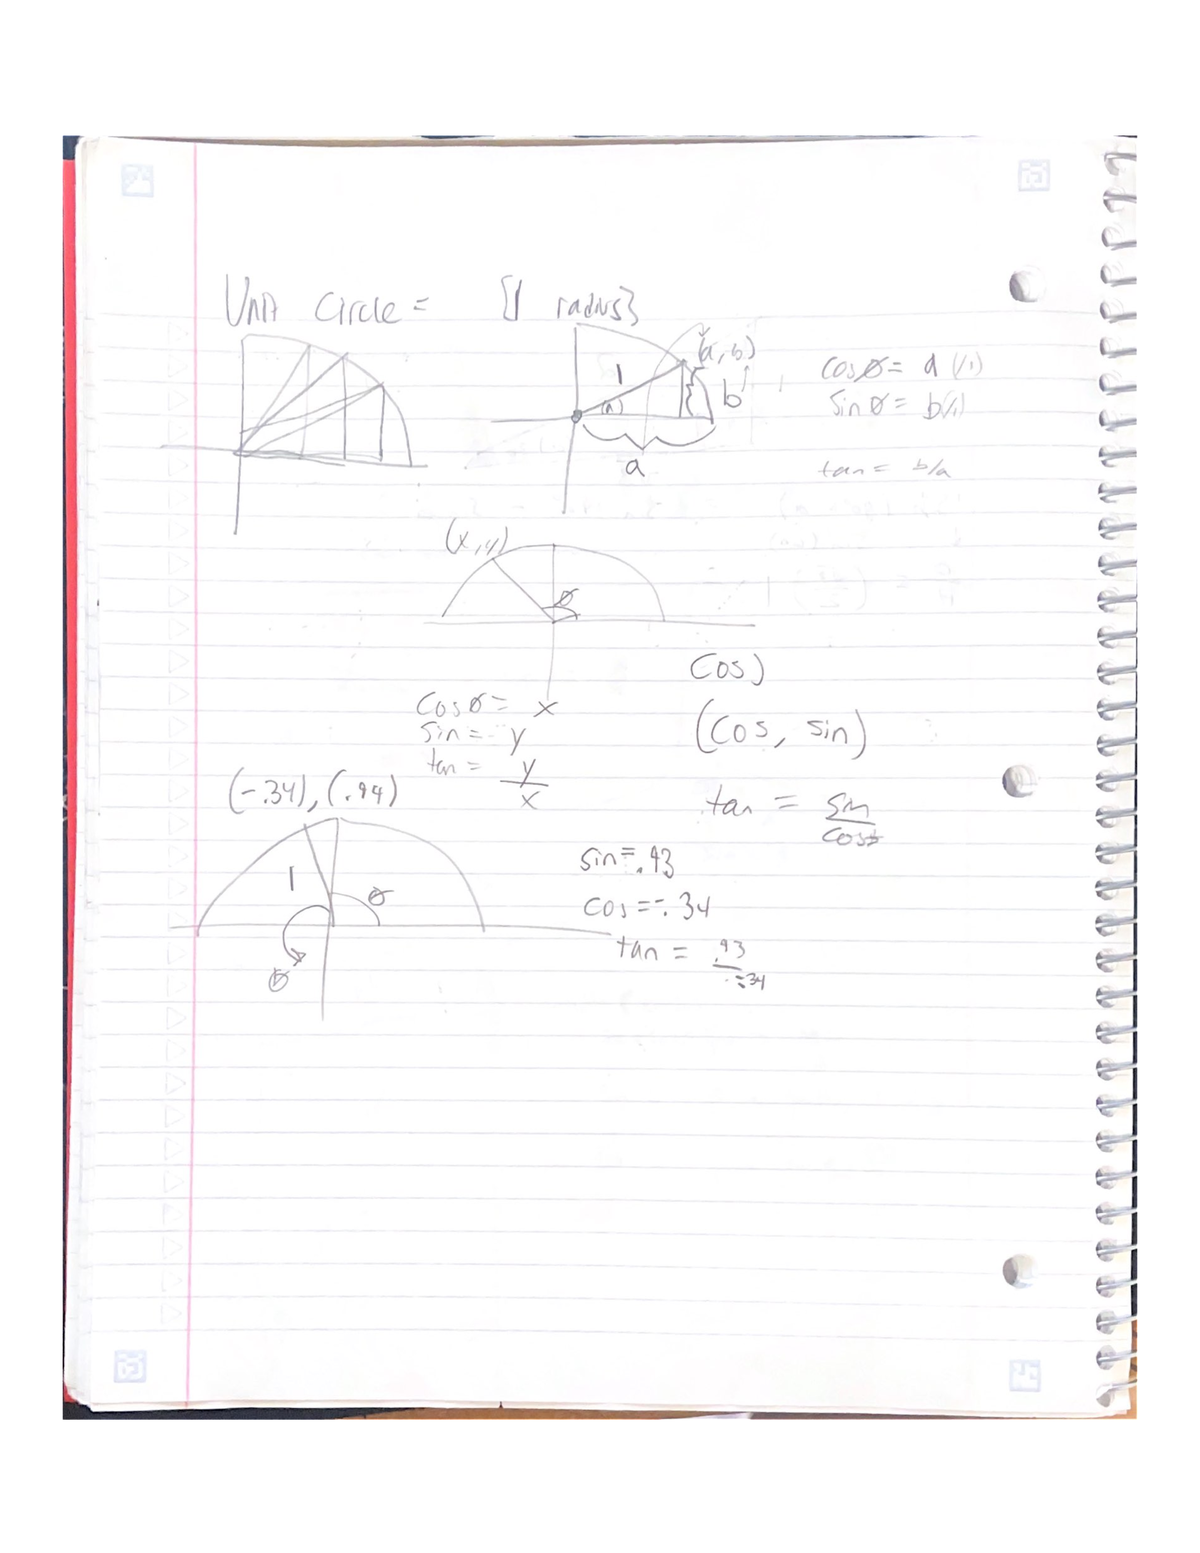 Unit Circle = {1 radius}
(a, b)
1
b
a
cosθ = a (/1)
sinθ = b(/1)
tan = b/a
(x, y)
θ
cosθ = x
sin = y
tan = y/x
cos)
(cos, sin)
tan = sin/cos
(-.34), (.94)
1
θ
θ
sin = .93
cos = -.34
tan = .93/-.34